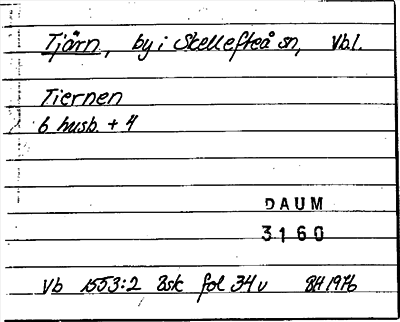 Tjärn, by i Skellefteå sn, Vb.l.
Tiernen
6 husb. + 4
DAUM
3160
Vb 1553:2 Bsk fol 34 v BH 1976